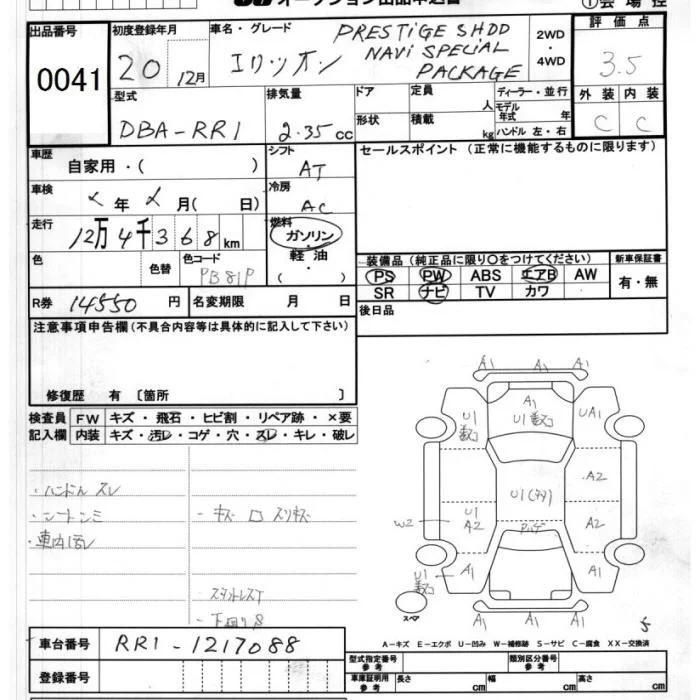 オークション出品申込書
①会場控
出品番号
0041
初度登録年月
20 12月
車名・グレード
エリシオン
PRESTIGE SHDD
NAVI SPECIAL
PACKAGE
2WD
・
4WD
評価点
3.5
外装 内装
C C
型式
DBA-RR1
排気量
2.35 cc
ドア
形状
定員
人
積載
kg
ディーラー・並行
モデル年式 年
ハンドル 左・右
車歴
自家用・( )
シフト
AT
セールスポイント (正常に機能するものに限ります)
車検
年 月( 日)
冷房
AC
走行
12万4千368 km
燃料
ガソリン
軽油
( ・ )
色
色替
色コード
PB81P
装備品 (純正品に限り○をつけてください)
PS PW ABS エアB AW
SR ナビ TV カワ
新車保証書
有・無
R券 14550 円
名変期限 月 日
後日品
注意事項申告欄(不具合内容等は具体的に記入して下さい)
修復歴 有 〔箇所 〕
検査員記入欄
FW キズ・飛石・ヒビ割・リペア跡・×要
内装 キズ・汚レ・コゲ・穴・スレ・キレ・破レ
・ハンドルスレ
・シートシミ
・車内汚レ
A1 A1 A1
A1
U1
U1
UA1
A2
U1
U1
A2
W2
A2
U1
A1
A1
A1 A1 A1
スペア
5
A-キズ E-エクボ U-凹み W-補修跡 S-サビ C-腐食 XX-交換済
車台番号
RR1-1217088
登録番号
型式指定番号 参考
類別区分番号 参考
車庫証明用 参考
長さ cm
幅 cm
高さ cm